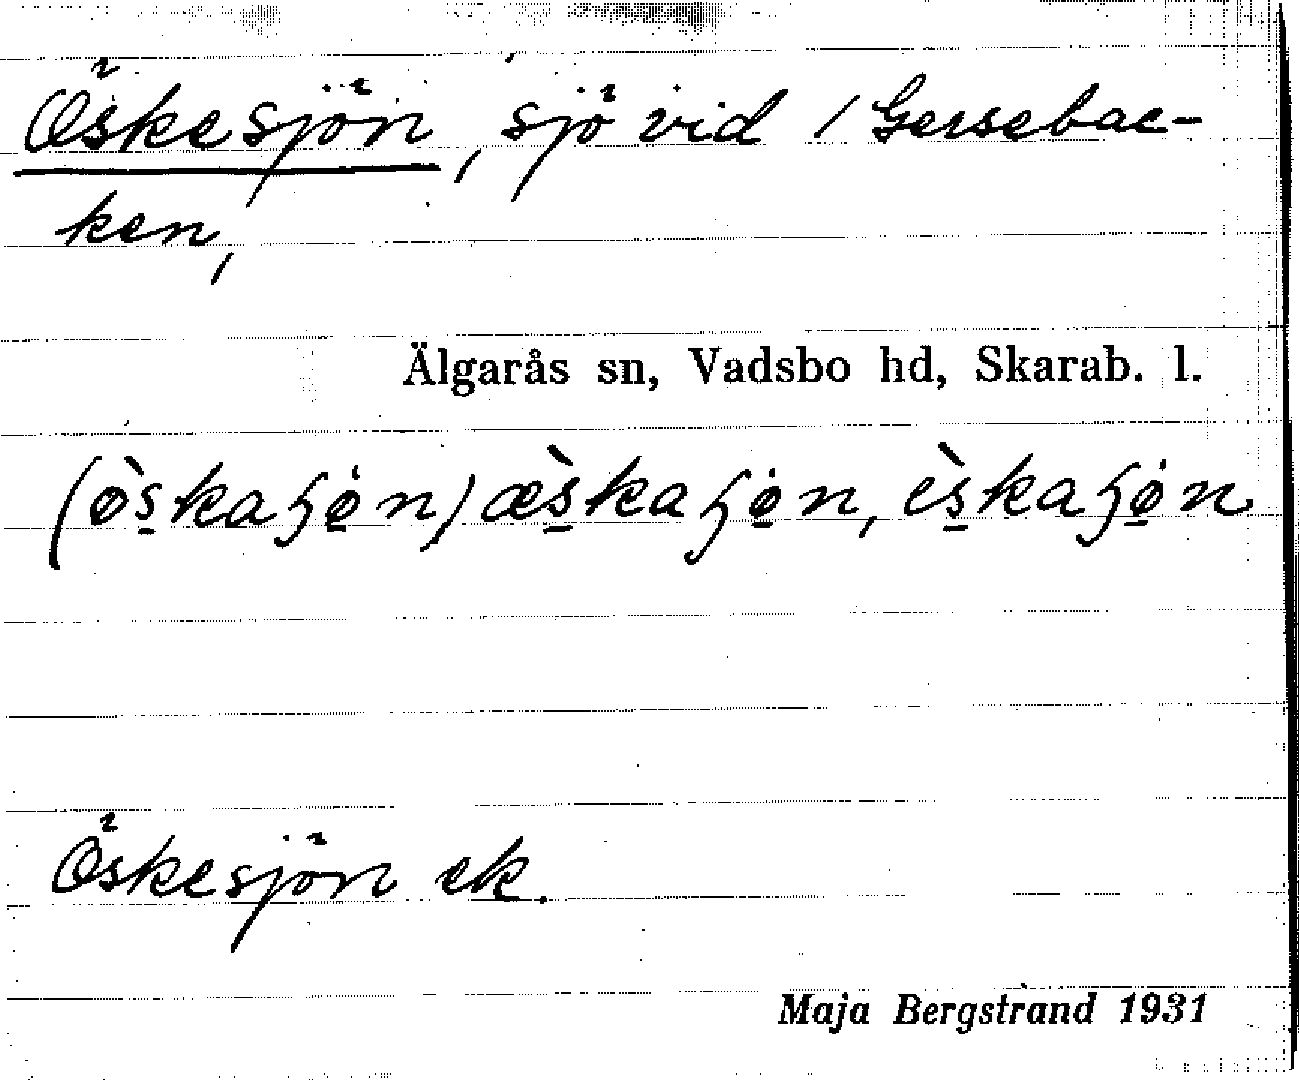 Öskesjön, sjö vid / Gersebac-
ken,
Älgarås sn, Vadsbo hd, Skarab. l.
(ø̀s̱kaɧø̱n) æ̀s̱kaɧø̱n, ès̱kaɧø̱n
Öskesjön ek.
Maja Bergstrand 1931